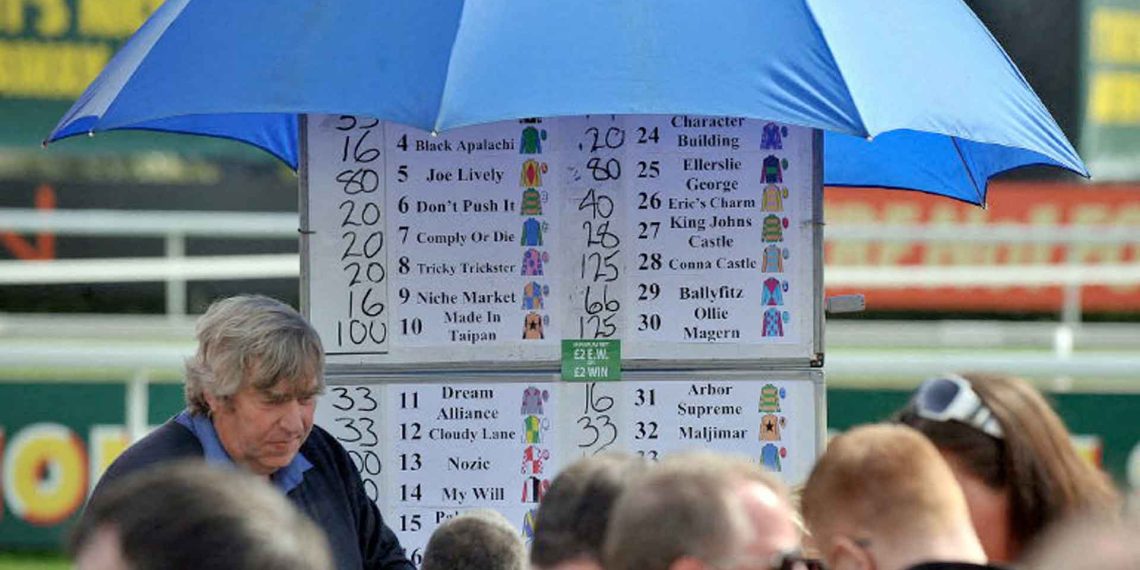 16 4 Black Apalachi
80 5 Joe Lively
20 6 Don't Push It
20 7 Comply Or Die
20 8 Tricky Trickster
16 9 Niche Market
100 10 Made In
Taipan
20 24 Character
Building
80 25 Ellerslie
George
40 26 Eric's Charm
28 27 King Johns
Castle
125 28 Conna Castle
66 29 Ballyfitz
125 30 Ollie
Magern
£2 E.W.
£2 WIN
33 11 Dream
Alliance
33 12 Cloudy Lane
13 Nozic
14 My Will
15
16 31 Arbor
Supreme
33 32 Maljimar